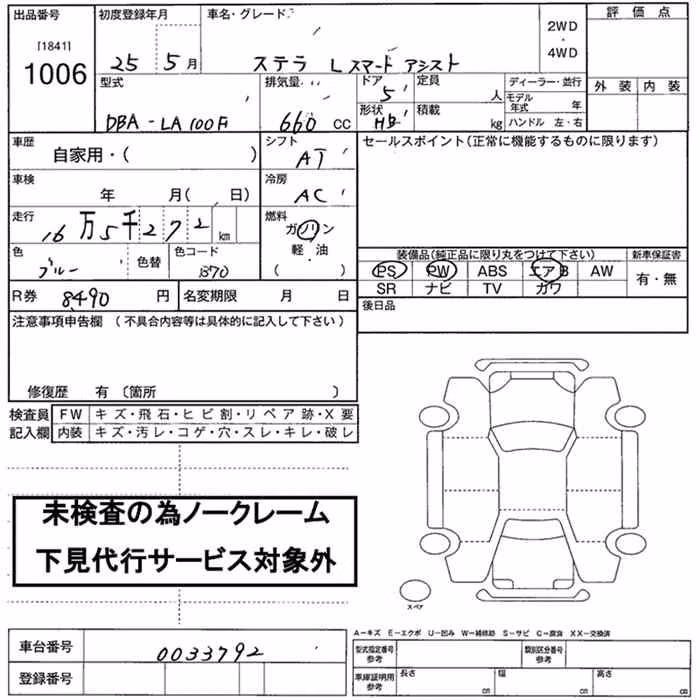 出品番号 初度登録年月 車名・グレード 2WD 評価点
[1841] ・
1006 25 5月 ステラ Lスマートアシスト 4WD
型式 排気量 ドア 5 定員 人 ディーラー・並行 外装 内装
モデル年式 年
DBA-LA100F 660 CC 形状 HB 積載 kg ハンドル 左・右
車歴 自家用・( ) シフト AT セールスポイント(正常に機能するものに限ります)
車検 年 月( 日) 冷房 AC
走行 16万5千272km 燃料 ガソリン
軽・油
( )
色 ブルー 色替 色コード B70
装備品(純正品に限り丸をつけて下さい) 新車保証書
PS PW ABS エアB AW 有・無
SR ナビ TV カワ
R券 8490 円 名変期限 月 日 後日品
注意事項申告欄 (不具合内容等は具体的に記入して下さい)
修復歴 有 〔箇所 〕
検査員 FW キズ・飛石・ヒビ割・リペア跡・X要
記入欄 内装 キズ・汚レ・コゲ・穴・スレ・キレ・破レ
未検査の為ノークレーム
下見代行サービス対象外
スペア
A-キズ E-エクボ U-凹み W-補修跡 S-サビ C-腐蝕 XX-交換済
車台番号 0033792
型式指定番号 参考 類別区分番号 参考
登録番号
車庫証明用 参考 長さ cm 幅 cm 高さ cm